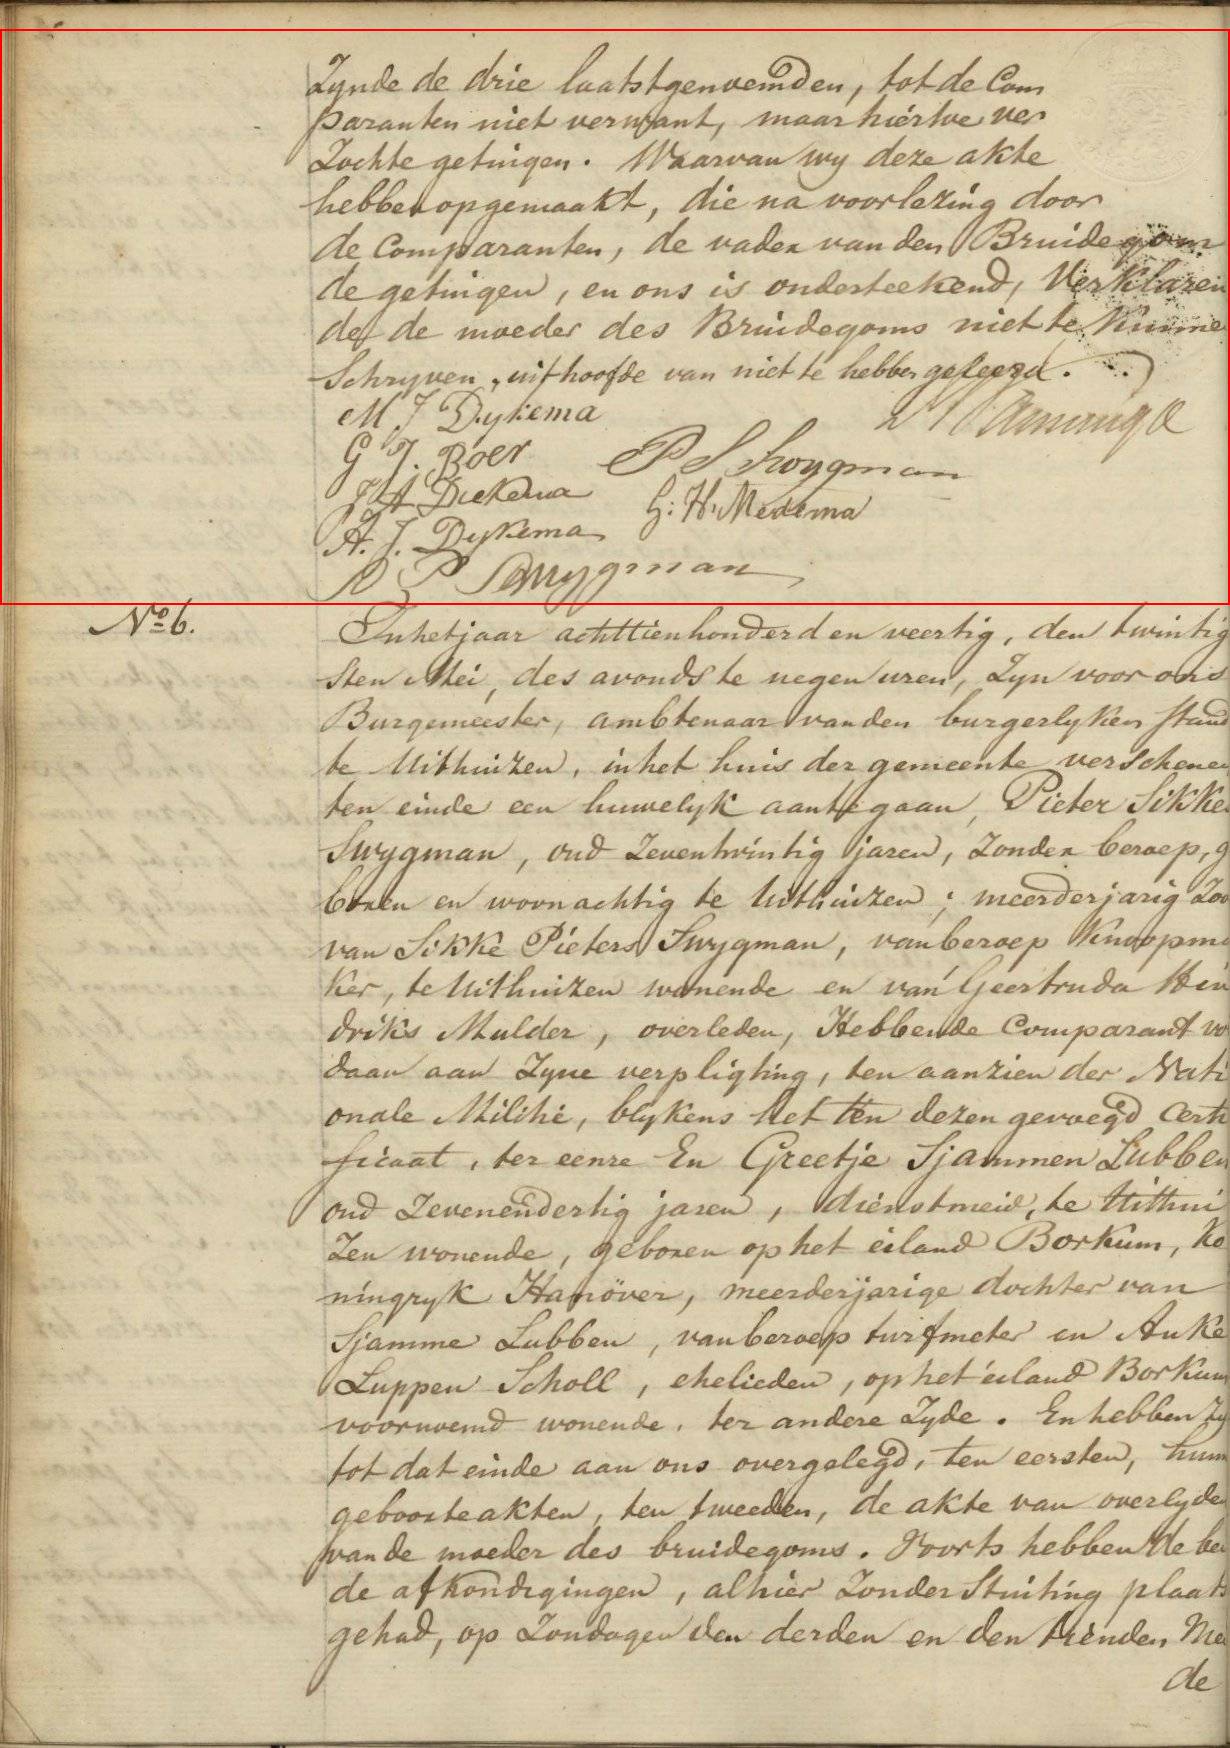 Zynde de drie laatstgenoemden, tot de Com
paranten niet verwant, maar hiertoe ver
Zochte getuigen. Waarvan wy deze akte
hebben opgemaakt, die na voorlezing door
de Comparanten, de vader van den Bruidegom
de getuigen, en ons is onderteekend, Verklaren
de de moeder des Bruidegoms niet te kunne
Schryven, uit hoofde van niet te hebben geleerd.
M J Dykema
G J. Boer
P S Swygman
J A Diekema
G: H. Medema
A. J. Dykema
S P Swygman
No 6.
In het jaar achttienhonderd en veertig, den twintig
sten Mei, des avonds te negen uren, Zyn voor ons
Burgemeester, ambtenaar van den burgerlyken stand
te Uithuizen, in het huis der gemeente verschenen
ten einde een huwelyk aan te gaan, Pieter Sikke
Swygman, oud Zeventwintig jaren, Zonder beroep, g
boren en woonachtig te Uithuizen; meerderjarig Zoo
van Sikke Pieters Swygman, van beroep Knoopma
ker, te Uithuizen wonende en van Geertruda Hen
driks Mulder, overleden, Hebbende Comparant vo
daan aan Zyne verpligting, ten aanzien der Nati
onale Militie, blykens het ten dezen gevoegd Certi
ficaat, ter eenre En Greetje Sjammen Lubben
oud Zevenendertig jaren, dienstmeid, te Uithui
Zen wonende, geboren op het eiland Borkum, Ko
ningryk Hanover, meerderjarige dochter van
Sjamme Lubben, van beroep turfmeter en Auke
Luppen Scholl, ehelieden, op het eiland Borkum
voornoemd wonende, ter andere Zyde. En hebben Zy
tot dat einde aan ons overgelegd, ten eersten, hunn
geboorteakten, ten tweeden, de akte van overlyden
van de moeder des bruidegoms. Voorts hebben de bei
de afkondigingen, alhier Zonder Stuiting plaats
gehad, op Zondagen den derden en den tienden Mei
de